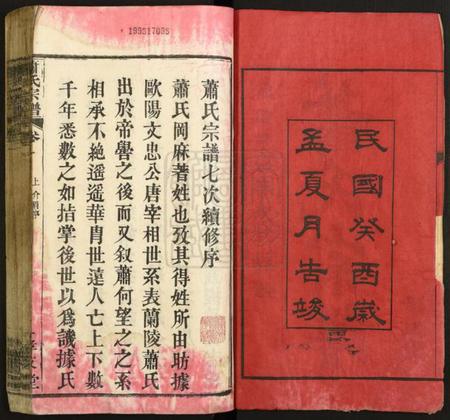 民國癸酉歲
孟夏月告竣
蕭氏宗譜七次續修序
蕭氏岡麻著姓也攷其得姓所由昉據
歐陽文忠公唐宰相世系表蘭陵蕭氏
出於帝嚳之後而又叙蕭何望之之系
相承不絶遥遥華胄世逹人亡上下數
千年悉數之如掌後世以爲譏據氏
蕭氏宗譜
卷一
199317095